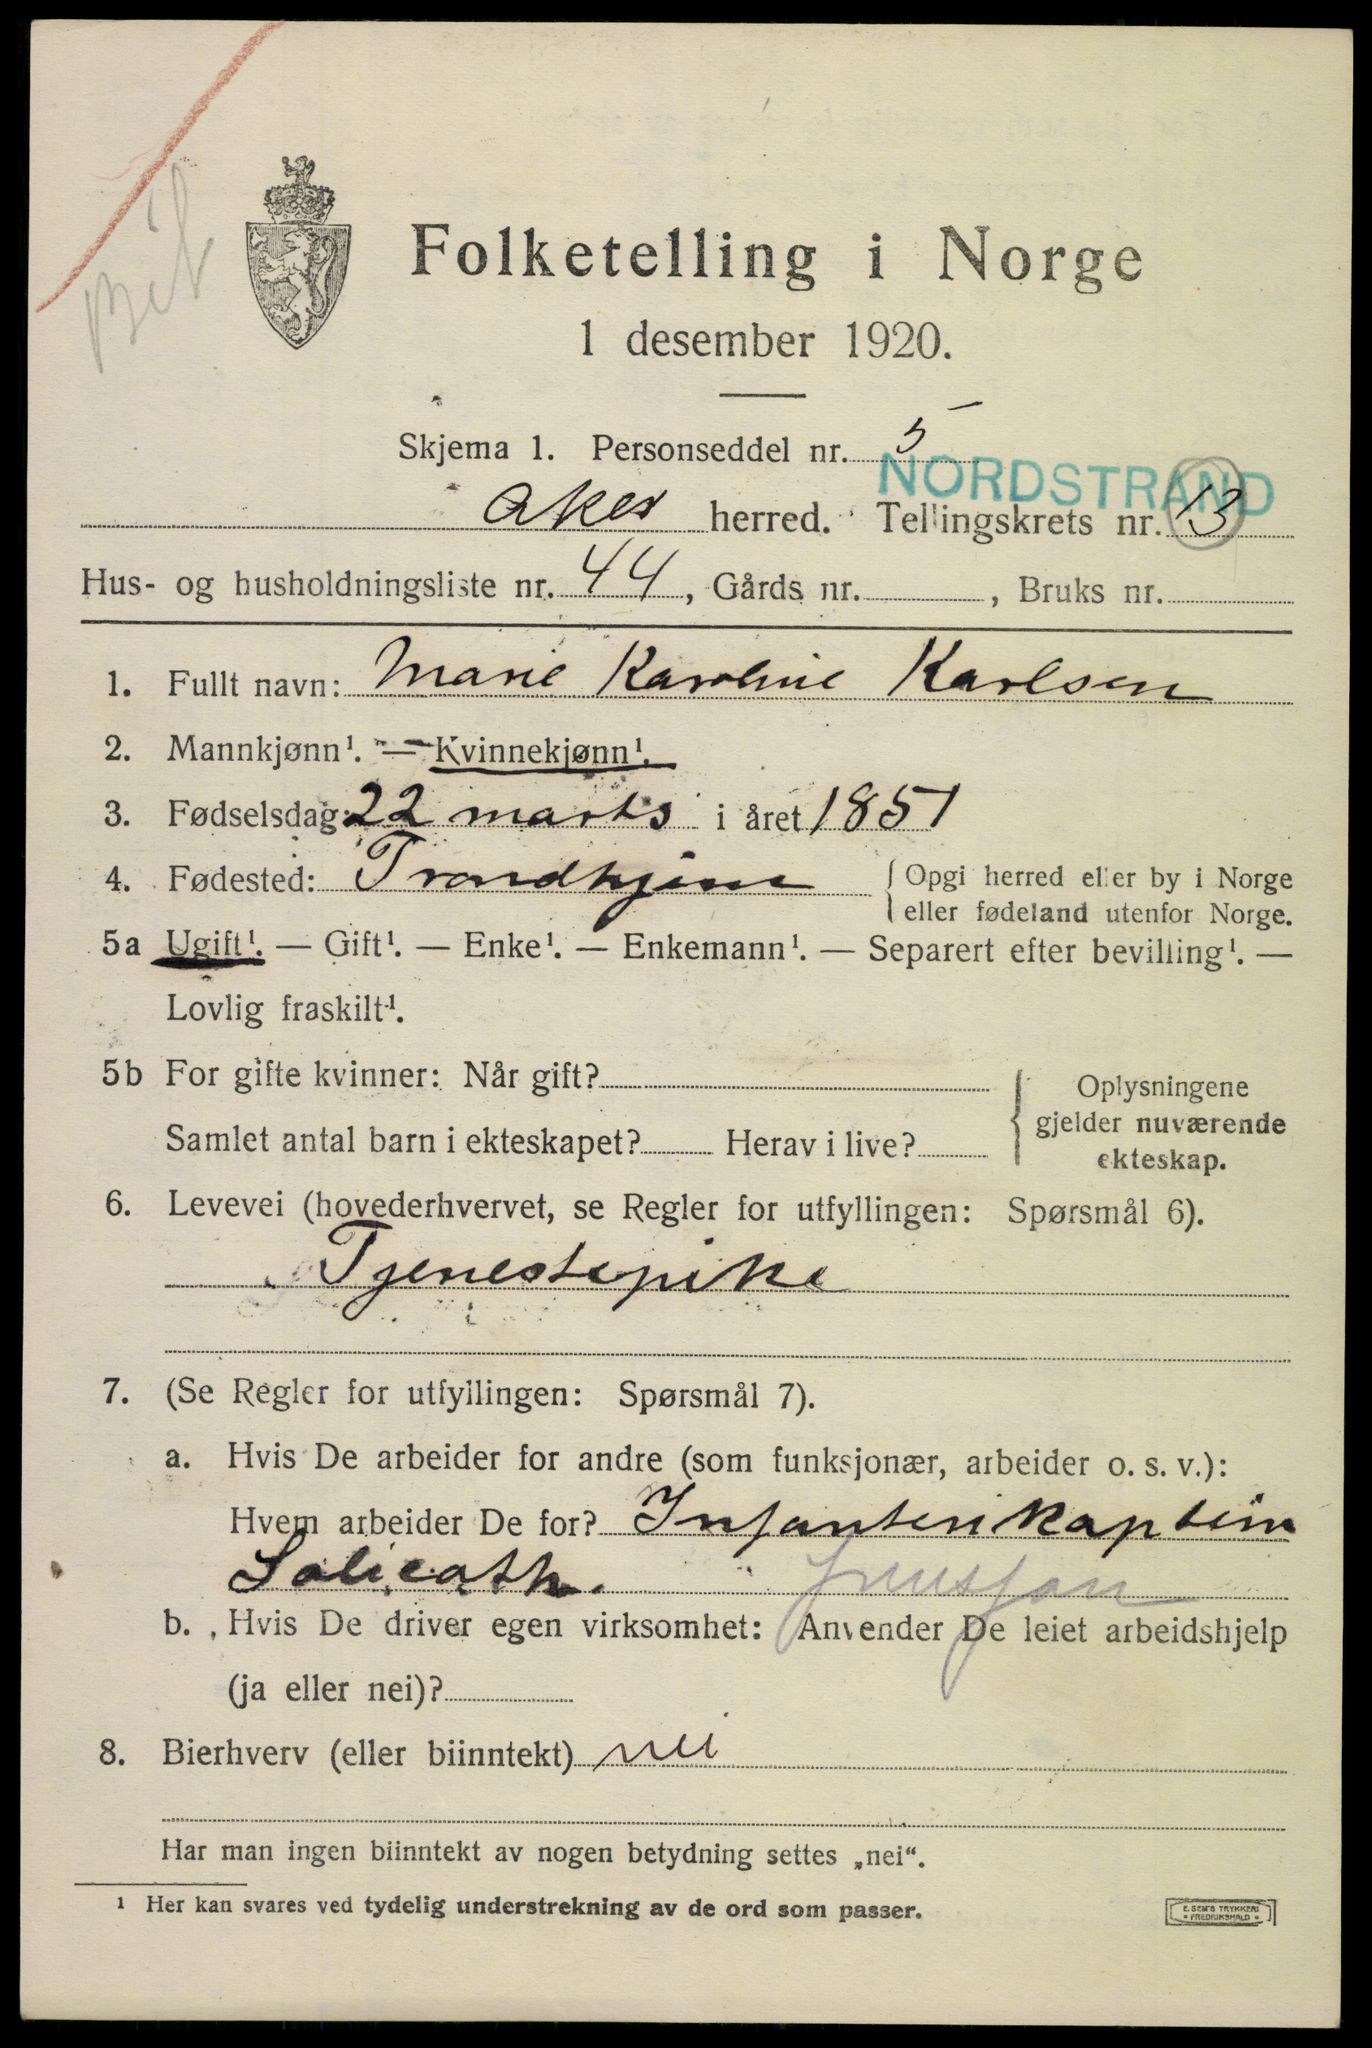 Folketelling i Norge
1 desember 1920.
Skjema 1. Personseddel nr. 5
NORDSTRAND
Aker herred. Tellingskrets nr. 13
Hus- og husholdningsliste nr. 44, Gårds nr. , Bruks nr.
1. Fullt navn: Marie Karoline Karlsen
2. Mannkjønn¹. — Kvinnekjønn¹.
3. Fødselsdag: 22 marts i året 1851
4. Fødested: Trondhjem { Opgi herred eller by i Norge
eller fødeland utenfor Norge.
5a Ugift¹. — Gift¹. — Enke¹. — Enkemann¹. — Separert efter bevilling¹. —
Lovlig fraskilt¹.
5b For gifte kvinner: Når gift?
Samlet antal barn i ekteskapet? Herav i live?
Oplysningene
gjelder nuværende
ekteskap.
6. Levevei (hovederhvervet, se Regler for utfyllingen: Spørsmål 6).
Tjenestepike
7. (Se Regler for utfyllingen: Spørsmål 7).
a. Hvis De arbeider for andre (som funksjonær, arbeider o. s. v.):
Hvem arbeider De for? Infanterikaptein
Salicath.
b. Hvis De driver egen virksomhet: Anvender De leiet arbeidshjelp
(ja eller nei)?
8. Bierhverv (eller biinntekt) nei
Har man ingen biinntekt av nogen betydning settes „nei“.
¹ Her kan svares ved tydelig understrekning av de ord som passer.
E. SEM'S TRYKKERI
• FREDRIKSHALD •